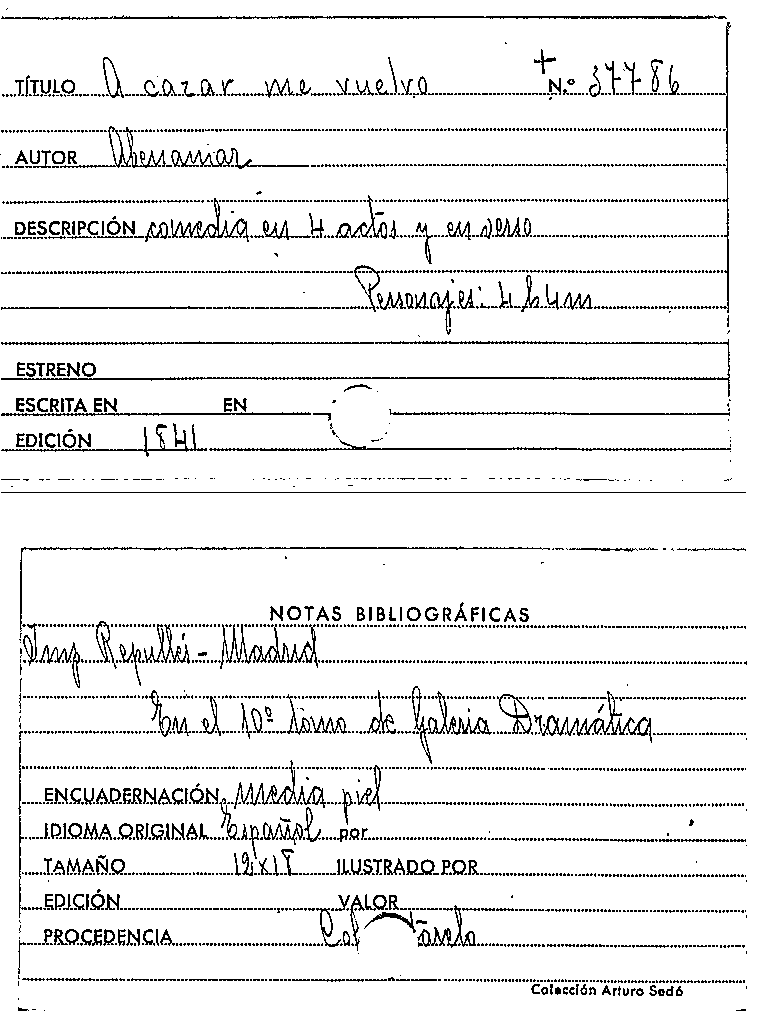 TÍTULO A cazar me vuelvo + N.º 37786
AUTOR Abenamar
DESCRIPCIÓN comedia en 4 actos y en verso
Personajes: 4 h 4 m
ESTRENO
ESCRITA EN EN
EDICIÓN 1841
NOTAS BIBLIOGRÁFICAS
Imp Repullés - Madrid
En el 10º tomo de Galeria Dramática
ENCUADERNACIÓN media piel
IDIOMA ORIGINAL Español por
TAMAÑO 12x18 ILUSTRADO POR
EDICIÓN VALOR
PROCEDENCIA Col
Colección Arturo Sedó